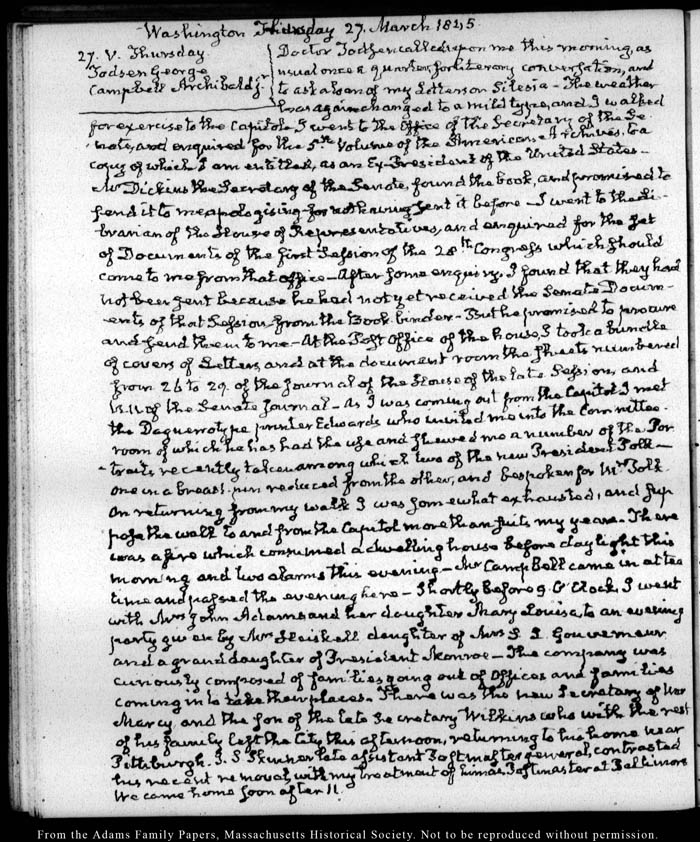 Washington Thursday 27. March 1845.
27. V. Thursday
Todsen George
Campbell Archibald j.
Doctor Todsen called upon me this morning, as
usual once a quarter, for literary conversation, and
to ask a loan of my Letters on Silesia – The weather
has again changed to a mild type, and I walked
for exercise to the Capitol. I went to the Office of the Secretary of the Se-
nate, and enquired for the 5th Volume of the American Archives, to a
copy of which I am entitled, as an Ex-President of the United States –
Mr Dickins the Secretary of the Senate, found the book, and promised to
send it to me apologising for not having sent it before – I went to the Li-
brarian of the House of Representatives, and enquired for the Set
of Documents of the first Session of the 28th Congress which should
come to me from that office – After some enquiry, I found that they had
not been sent because he had not yet received the Senate Docum-
ents of that Session from the Book binder – But he promised to procure
and send them to me – At the Post Office of the house, I took a bundle
of covers of Letters, and at the document room the sheets numbered
from 26 to 29. of the Journal of the House of the late Session, and
of the Senate Journal – As I was coming out from the Capitol I met
the Daguerrotype printer Edwards who invited me into the Committee
room of which he has had the use and shewed me a number of the Por
traits recently taken among which two of the new President Polk –
one in a breast-pin reduced from the other, and bespoken for Mrs Polk
On returning from my walk I was somewhat exhausted, and sup
pose the walk to and from the Capitol more than suits my years. There
was a fire which consumed a dwelling house before day light this
morning and two alarms this evening – Mr Campbell came in at tea
time and passed the evening here – Shortly before 9. O'Clock I went
with Mrs John Adams and her daughter Mary Louisa, to an evening
party given by Mrs Heiskell daughter of Mrs S. L. Gouverneur
and a granddaughter of President Monroe – The company was
curiously composed of families going out of Offices and families
coming in to take their places. There was the new Secretary of War
Marcy and the son of the late Secretary Wilkins who with the rest
of his family left the City this afternoon, returning to his home near
Pittsburgh. J. S Skinner late assistant Postmaster general, contrasted
his recent removal with my treatment of him as Postmaster at Baltimore
We came home soon after 11.
From the Adams Family Papers, Massachusetts Historical Society. Not to be reproduced without permission.